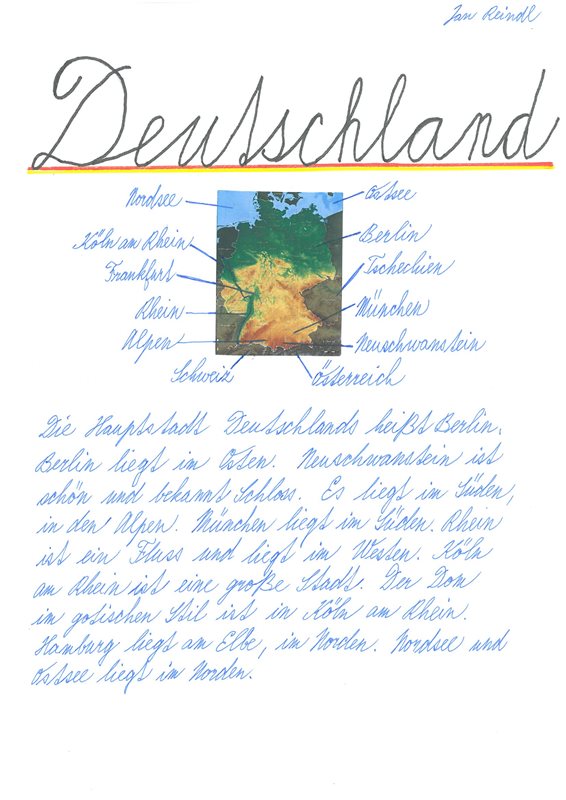 Jan Reindl
Deutschland
Nordsee
Ostsee
Köln am Rhein
Berlin
Frankfurt
Tschechien
Rhein
München
Alpen
Neuschwanstein
Schweiz
Österreich
Die Hauptstadt Deutschlands heißt Berlin.
Berlin liegt im Osten. Neuschwanstein ist
schön und bekannt Schloss. Es liegt im Süden,
in den Alpen. München liegt im Süden. Rhein
ist ein Fluss und liegt im Westen. Köln
am Rhein ist eine große Stadt. Der Dom
im gotischen Stil ist in Köln am Rhein.
Hamburg liegt am Elbe, im Norden. Nordsee und
Ostsee liegt im Norden.